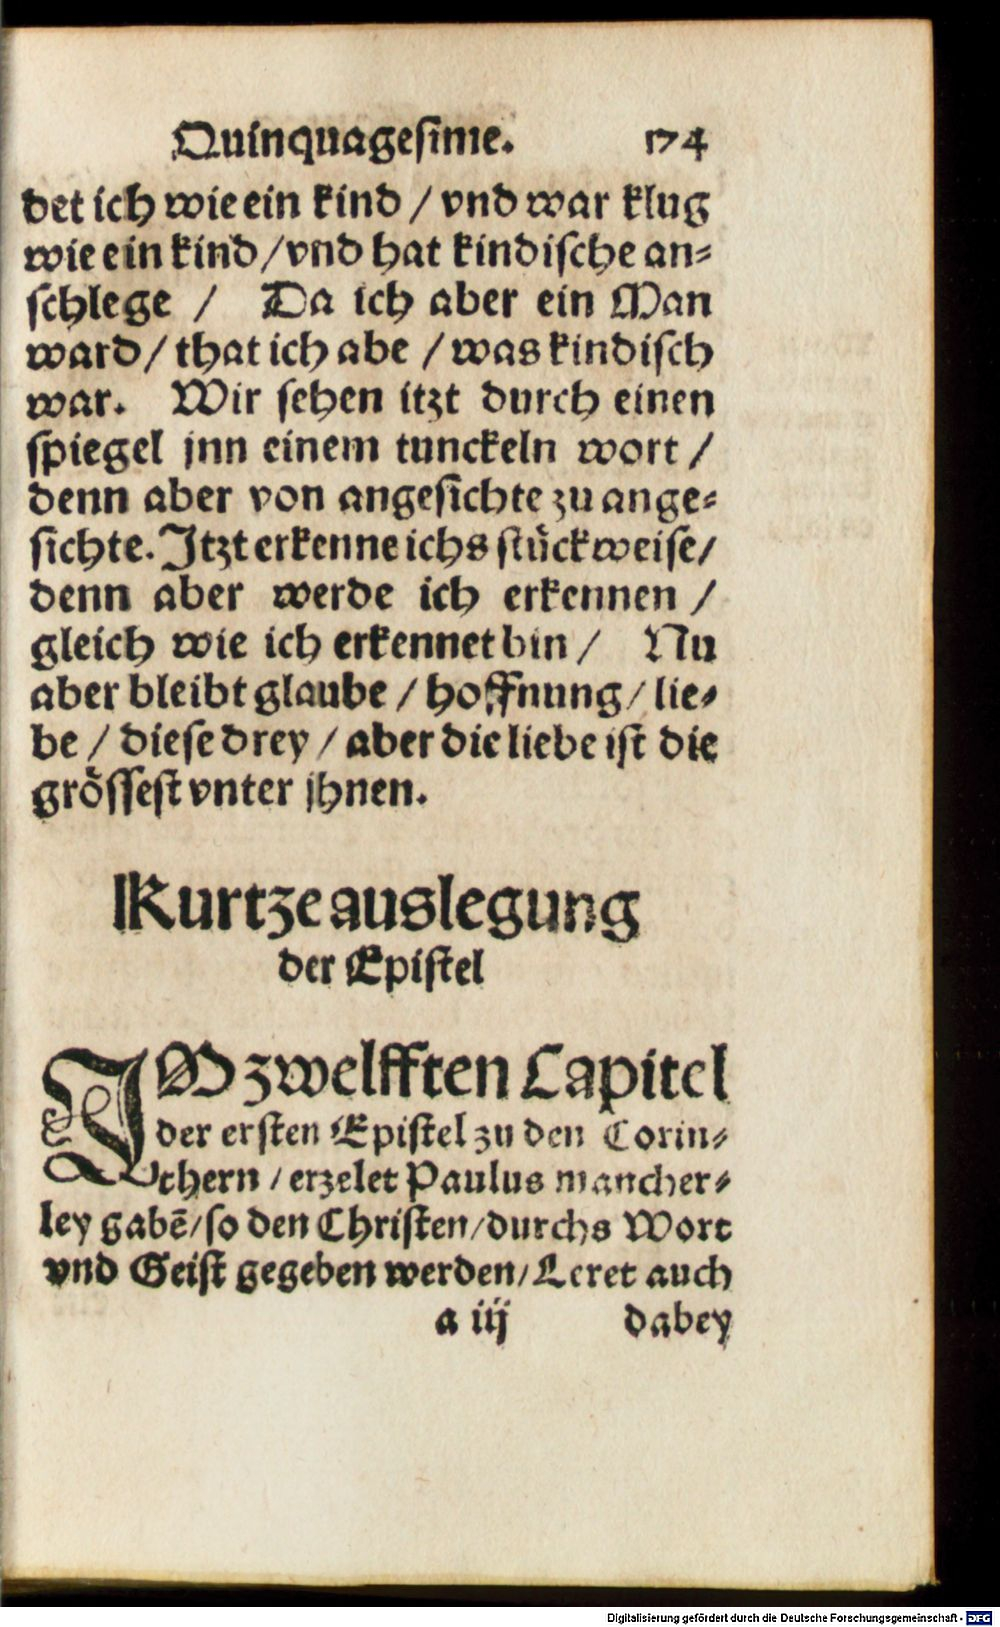 Quinquagesime. 174
det ich wie ein kind / vnd war klug
wie ein kind / vnd hat kindische an-
schlege / Da ich aber ein Man
ward / that ich abe / was kindisch
war. Wir sehen itzt durch einen
spiegel jnn einem tunckeln wort /
denn aber von angesichte zu ange-
sichte. Jtzt erkenne ichs stückweise /
denn aber werde ich erkennen /
gleich wie ich erkennet bin / Nu
aber bleibt glaube / hoffnung / lie-
be / diese drey / aber die liebe ist die
grössest vnter jhnen.
Kurtze auslegung
der Epistel
JM zwelfften Capitel
der ersten Epistel zu den Corin-
thern / erzelet Paulus mancher-
ley gabē / so den Christen / durchs Wort
vnd Geist gegeben werden / Leret auch
a iij dabey
Digitalisierung gefördert durch die Deutsche Forschungsgemeinschaft - DFG